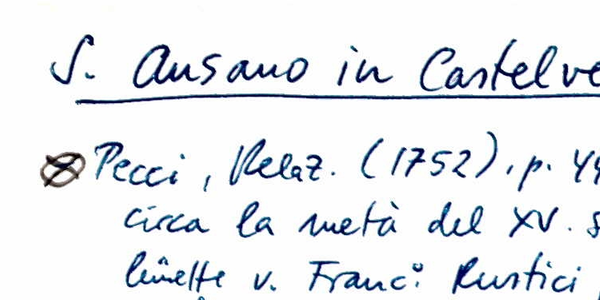 S. Ansano in Castelve
Pecci, Relaz. (1752), p. 44
circa la metà del XV. s
lünette v. Franc.º Rustici